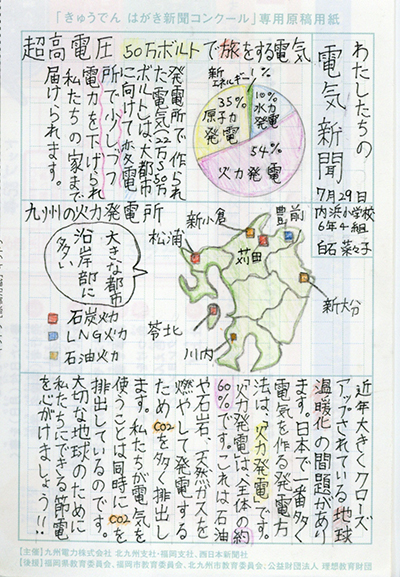 「きゅうでん はがき新聞コンクール」専用原稿用紙
わたしたちの
電気新聞
7月29日
内浜小学校
6年4組
白石 菜々子
超高電圧 50万ボルトで旅をする電気
発電所で作られ
た電気(22万〜50万
ボルト)は、大都市
に向けて変電
所で少しずつ
電力を下げられ
私たちの家まで
届けられます。
新エネルギー1%
10%
水力
発電
35%
原子力
発電
54%
火力発電
九州の火力発電所
大きな都市
沿岸部に
多い
石炭火力
LNG火力
石油火力
松浦
新小倉
苅田
豊前
新大分
苓北
川内
近年大きくクローズ
アップされている地球
温暖化の問題があり
ます。日本で一番多く
電気を作る発電方
法は、「火力発電」です。
「火力発電」は、全体の約
60%です。これは石油
や石炭、天然ガスを
燃やして発電する
ためCO2を多く排出し
ます。私たちが電気を
使うことは同時にCO2を
排出しているのです。
大切な地球のために
私たちにできる節電
を心がけましょう!!
【主催】九州電力株式会社 北九州支社・福岡支社、西日本新聞社
【後援】福岡県教育委員会、福岡市教育委員会、北九州市教育委員会、公益財団法人 理想教育財団